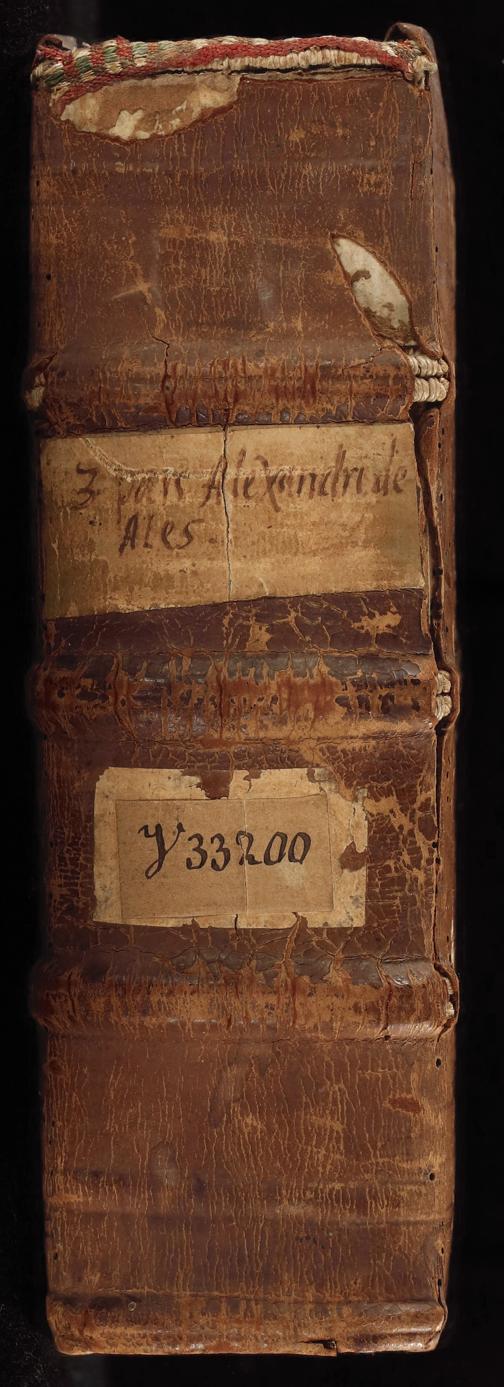 3 pars Alexandri de
Ales
Y 33200